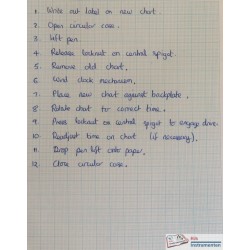 1. Write out label on new chart.
2. Open circular case.
3. Lift pen.
4. Release locknut on central spigot.
5. Remove old chart.
6. Wind clock mechanism.
7. Place new chart against backplate.
8. Rotate chart to correct time.
9. Press locknut on central spigot to engage drive.
10. Readjust time on chart (if necessary).
11. Drop pen lift onto paper.
12. Close circular case.
Instrumenten